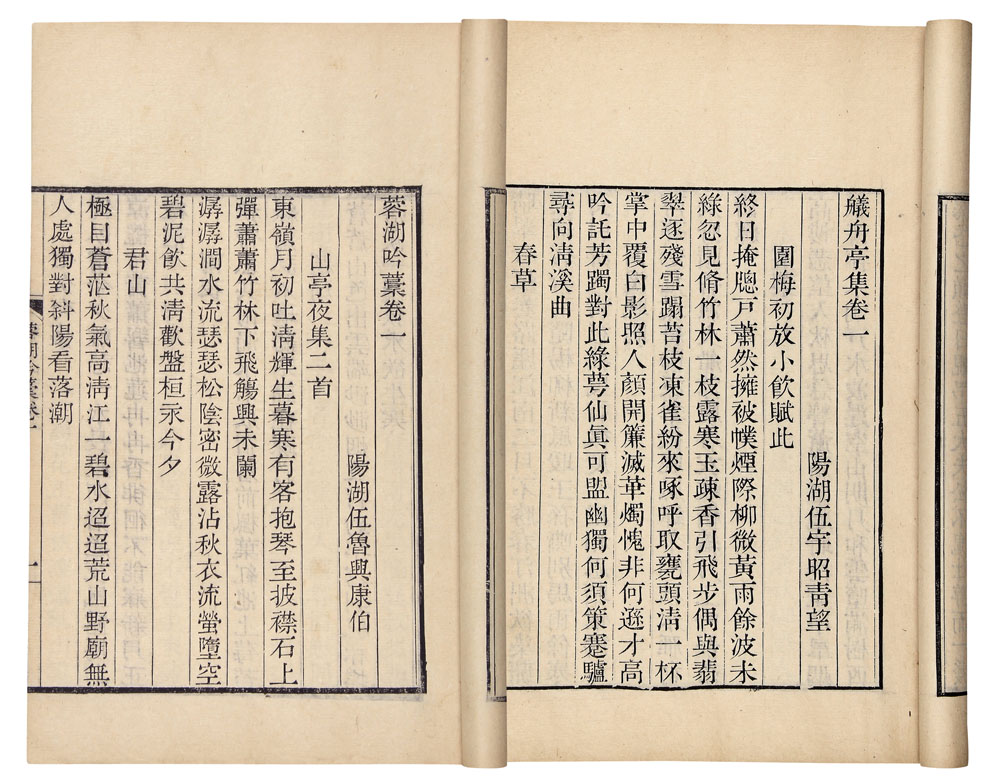 艤舟亭集卷一
陽湖伍宇昭青望
圍梅初放小飲賦此
終日掩牕戸蕭然擁被幞煙際柳微黃雨餘波未
綠忽見脩竹林一枝露寒玉疎香引飛步偶與翡
翠逐殘雪蹋苔枝凍雀紛來啄呼取甕頭淸一杯
掌中覆白影照人顔開簾滅華燭愧非何遜才高
吟託芳躅對此綠萼仙眞可盟幽獨何須策蹇驢
尋向淸溪曲
春草
蓉湖吟藁卷一
陽湖伍魯興康伯
山亭夜集二首
東嶺月初吐淸輝生暮寒有客抱琴至披襟石上
彈蕭蕭竹林下飛觴興未闌
潺潺澗水流瑟瑟松陰密微露沾秋衣流螢墮空
碧泥飮共淸歡盤桓永今夕
君山
極目蒼茫秋氣高淸江一碧水迢迢荒山野廟無
人處獨對斜陽看落潮
蓉湖吟藁卷一
一